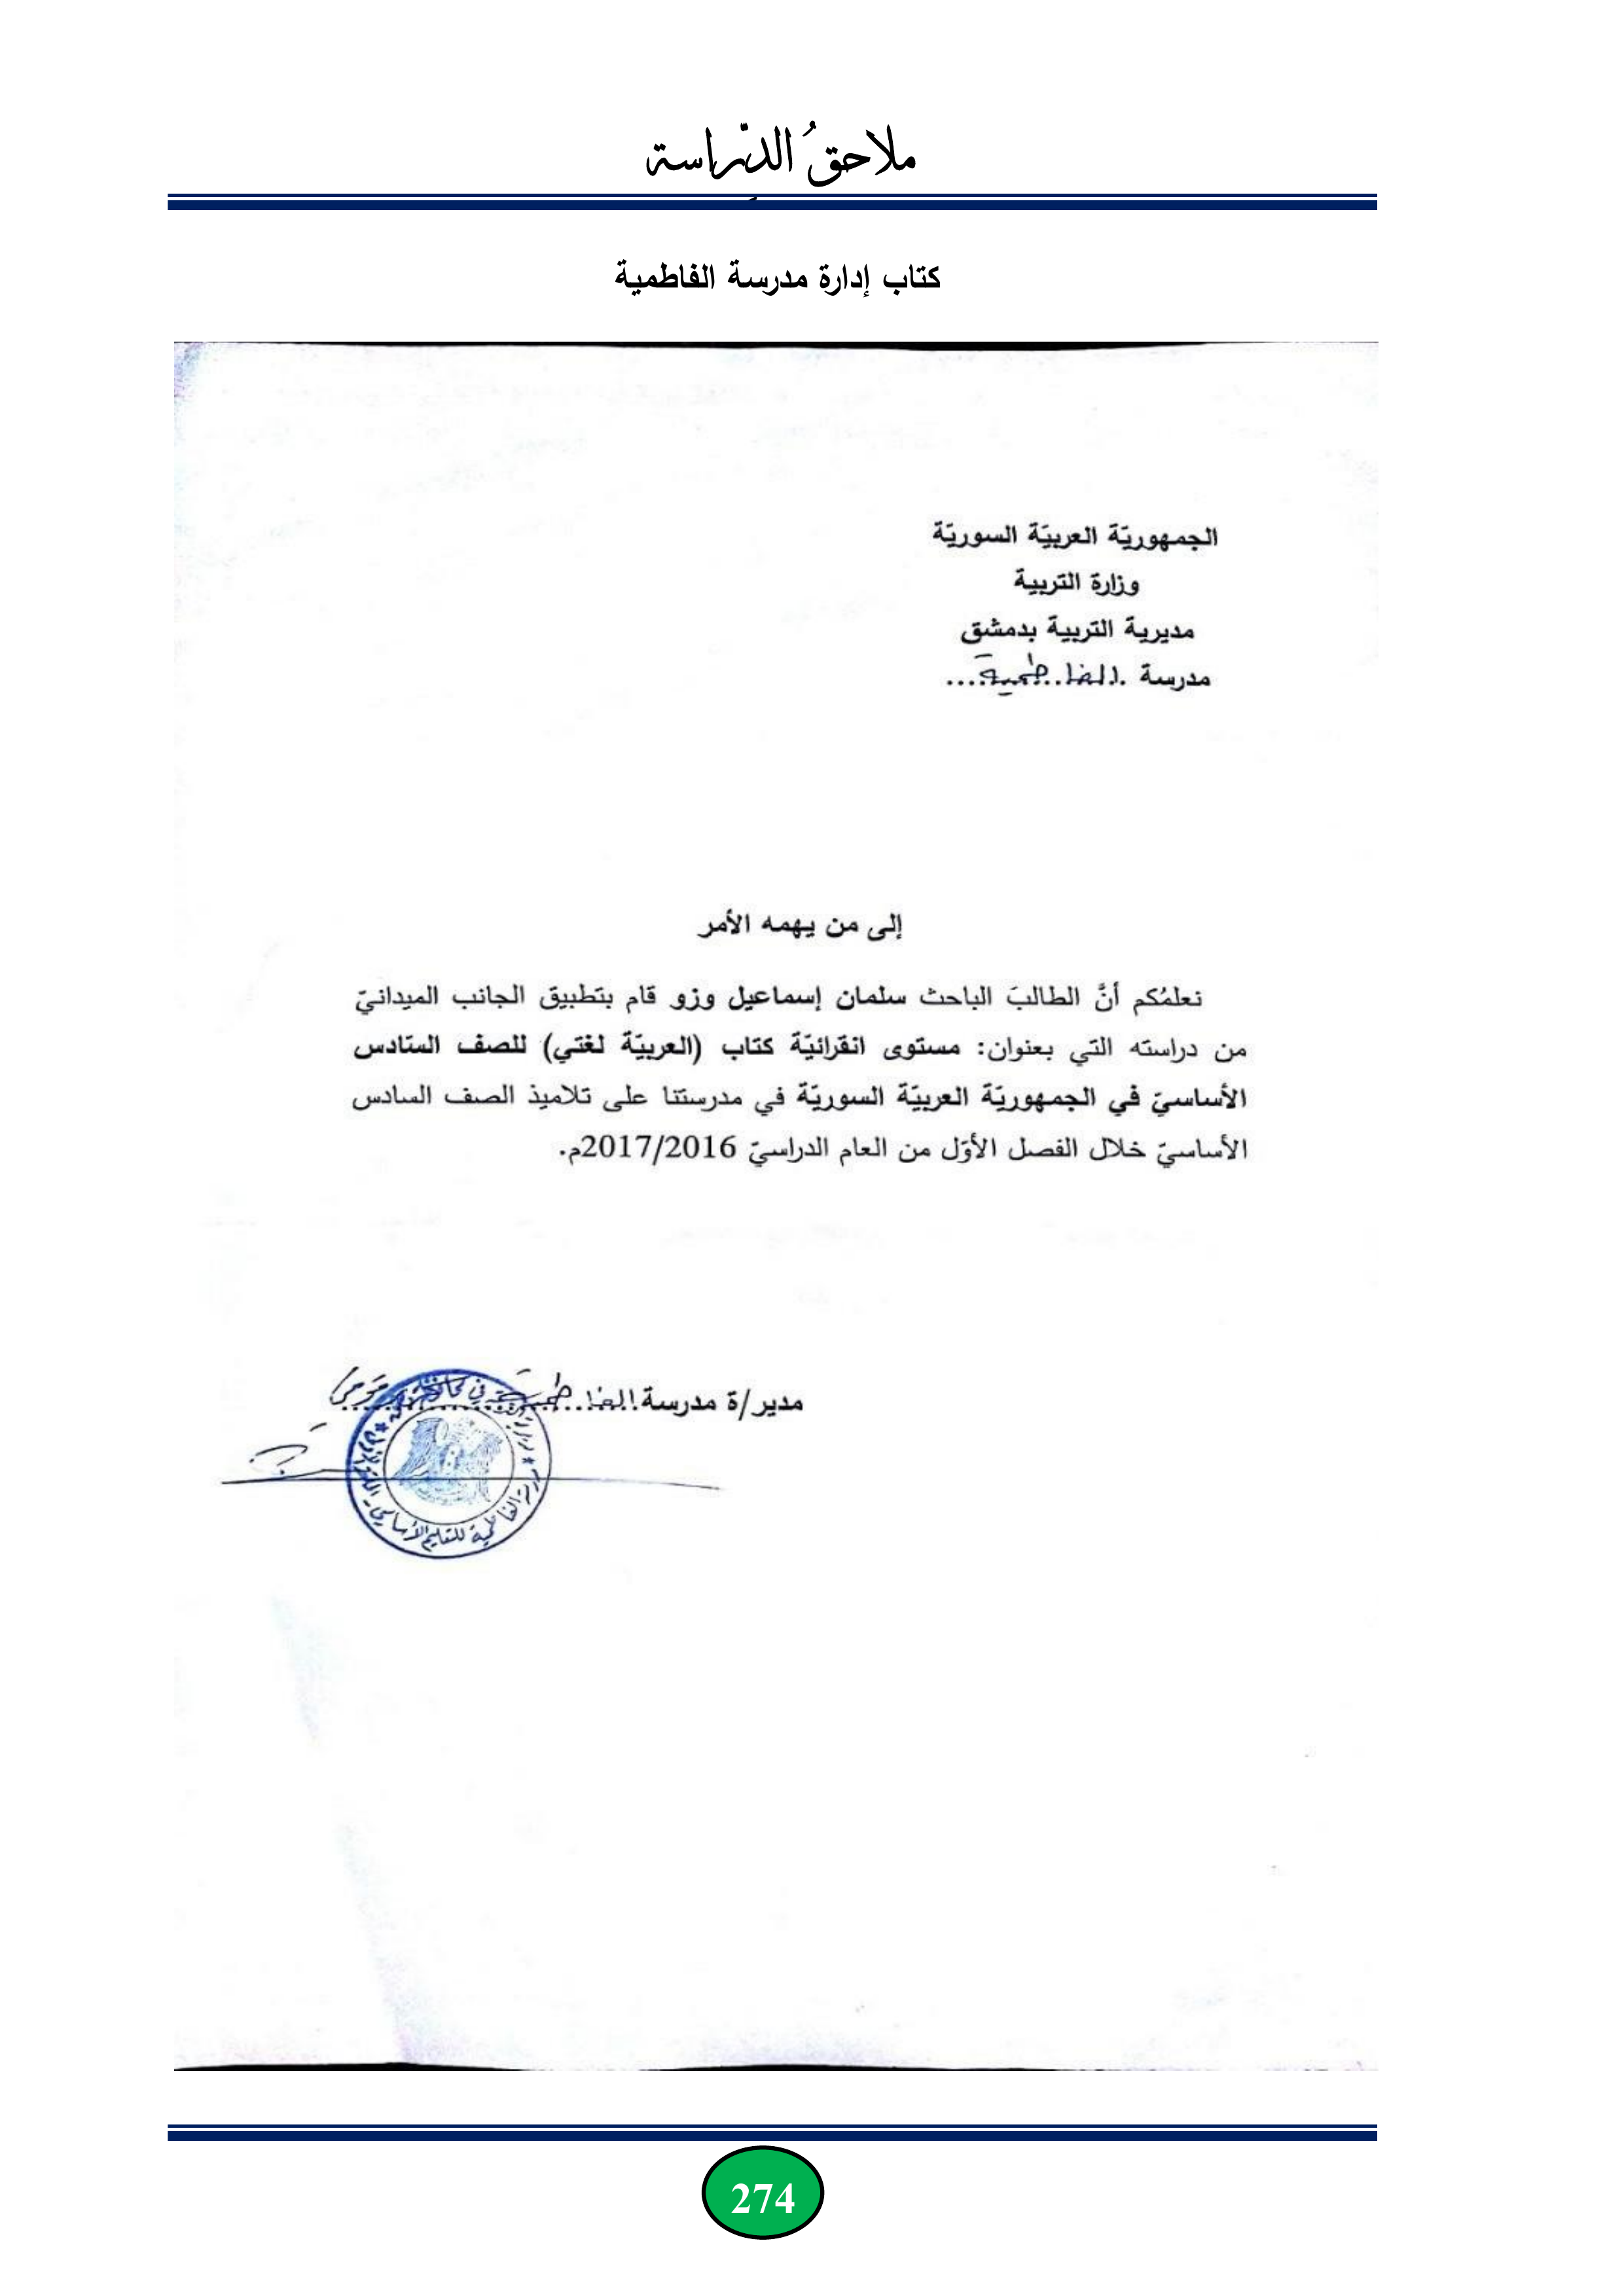 ملاحقُ الدِّراسة
كتاب إدارة مدرسة الفاطمية
الجمهوريّة العربيّة السوريّة
وزارة التربية
مديرية التربية بدمشق
مدرسة .الفاطمية.....
إلى من يهمه الأمر
نعلمُكم أنَّ الطالبَ الباحث سلمان إسماعيل وزو قام بتطبيق الجانب الميدانيّ
من دراسته التي بعنوان: مستوى انقرائيّة كتاب (العربيّة لغتي) للصف السّادس
الأساسيّ في الجمهوريّة العربيّة السوريّة في مدرستنا على تلاميذ الصف السادس
الأساسيّ خلال الفصل الأوّل من العام الدراسيّ 2017/2016م.
مدير/ة مدرسة الفاطمية
الفاطمية للتعليم الأساسي
274